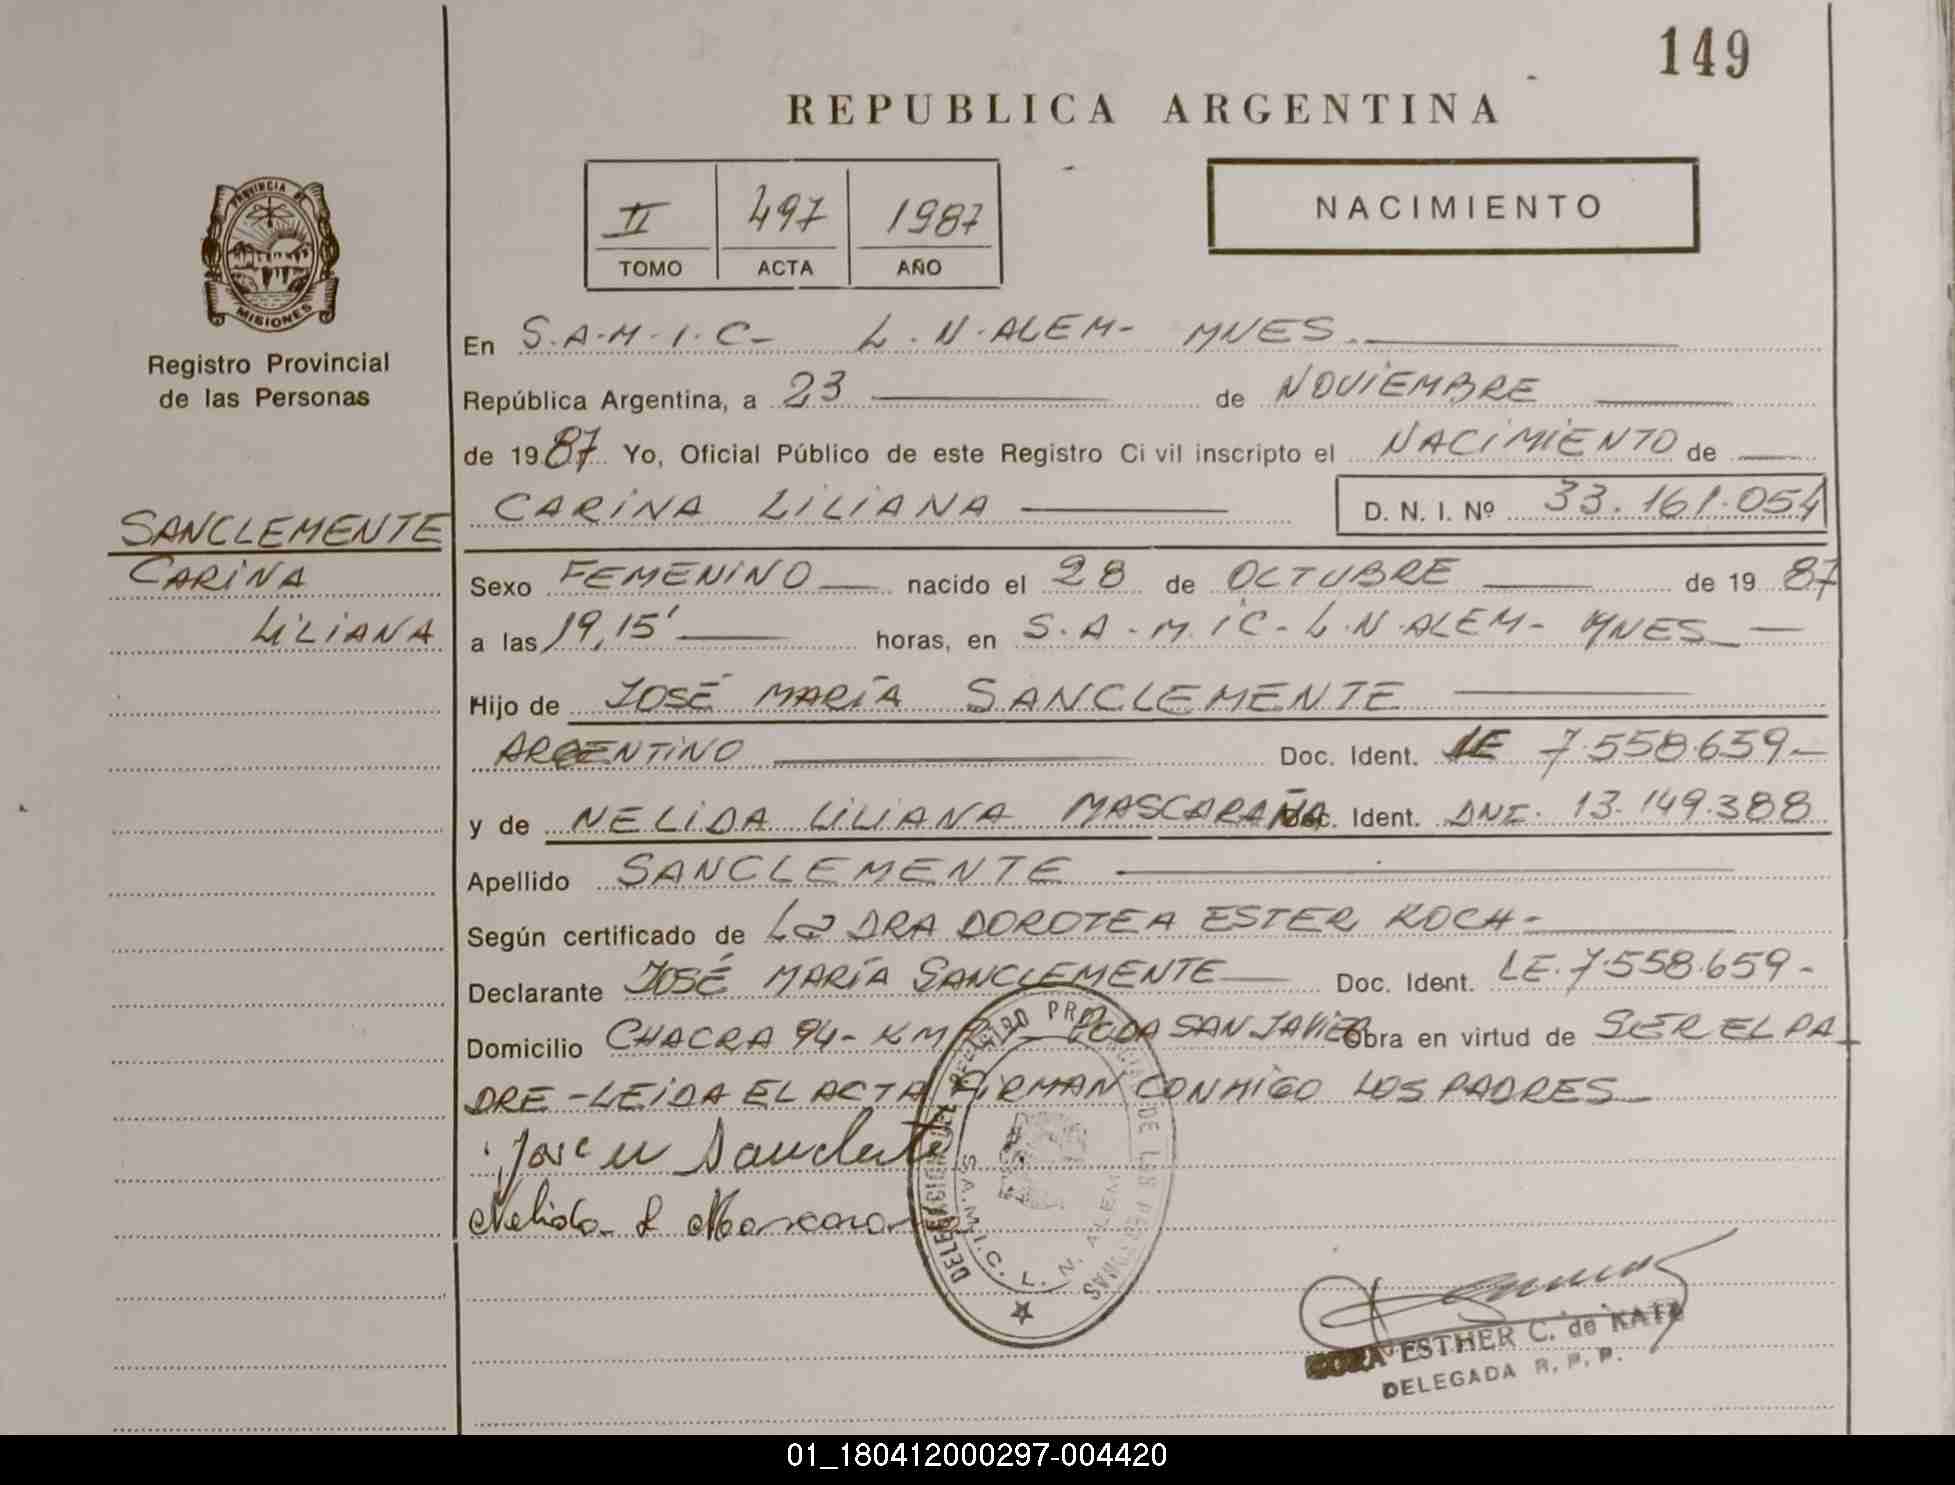 149
REPUBLICA ARGENTINA
II 497 1987
TOMO ACTA AÑO
NACIMIENTO
PROVINCIA DE
MISIONES
Registro Provincial
de las Personas
SANCLEMENTE
CARINA
LILIANA
En S.A.M.I.C- L.N.ALEM- MNES.
República Argentina, a 23 de NOVIEMBRE
de 1987 Yo, Oficial Público de este Registro Civil inscripto el NACIMIENTO de
CARINA LILIANA D. N. I. Nº 33.161.054
Sexo FEMENINO nacido el 28 de OCTUBRE de 1987
a las 19,15' horas, en S.A.M.IC-L.N.ALEM- MNES
Hijo de JOSÉ MARÍA SANCLEMENTE
ARGENTINO Doc. Ident. LE 7.558.659-
y de NELIDA LILIANA MASCARAÑA Doc. Ident. DNI. 13.149.388
Apellido SANCLEMENTE
Según certificado de La DRA DOROTEA ESTER KOCH-
Declarante JOSÉ MARÍA SANCLEMENTE Doc. Ident. LE.7.558.659-
Domicilio CHACRA 94- KM SAN JAVIER Obra en virtud de SER EL PA
DRE-LEIDA EL ACTA FIRMAN CONMIGO LOS PADRES
José M Sanclemente
Nelida L
DELEGACION DEL REGISTRO PROVINCIAL DE LAS PERSONAS
S.A.M.I.C. L. N. ALEM
ESTHER C. de
DELEGADA R. P. P.
01_180412000297-004420